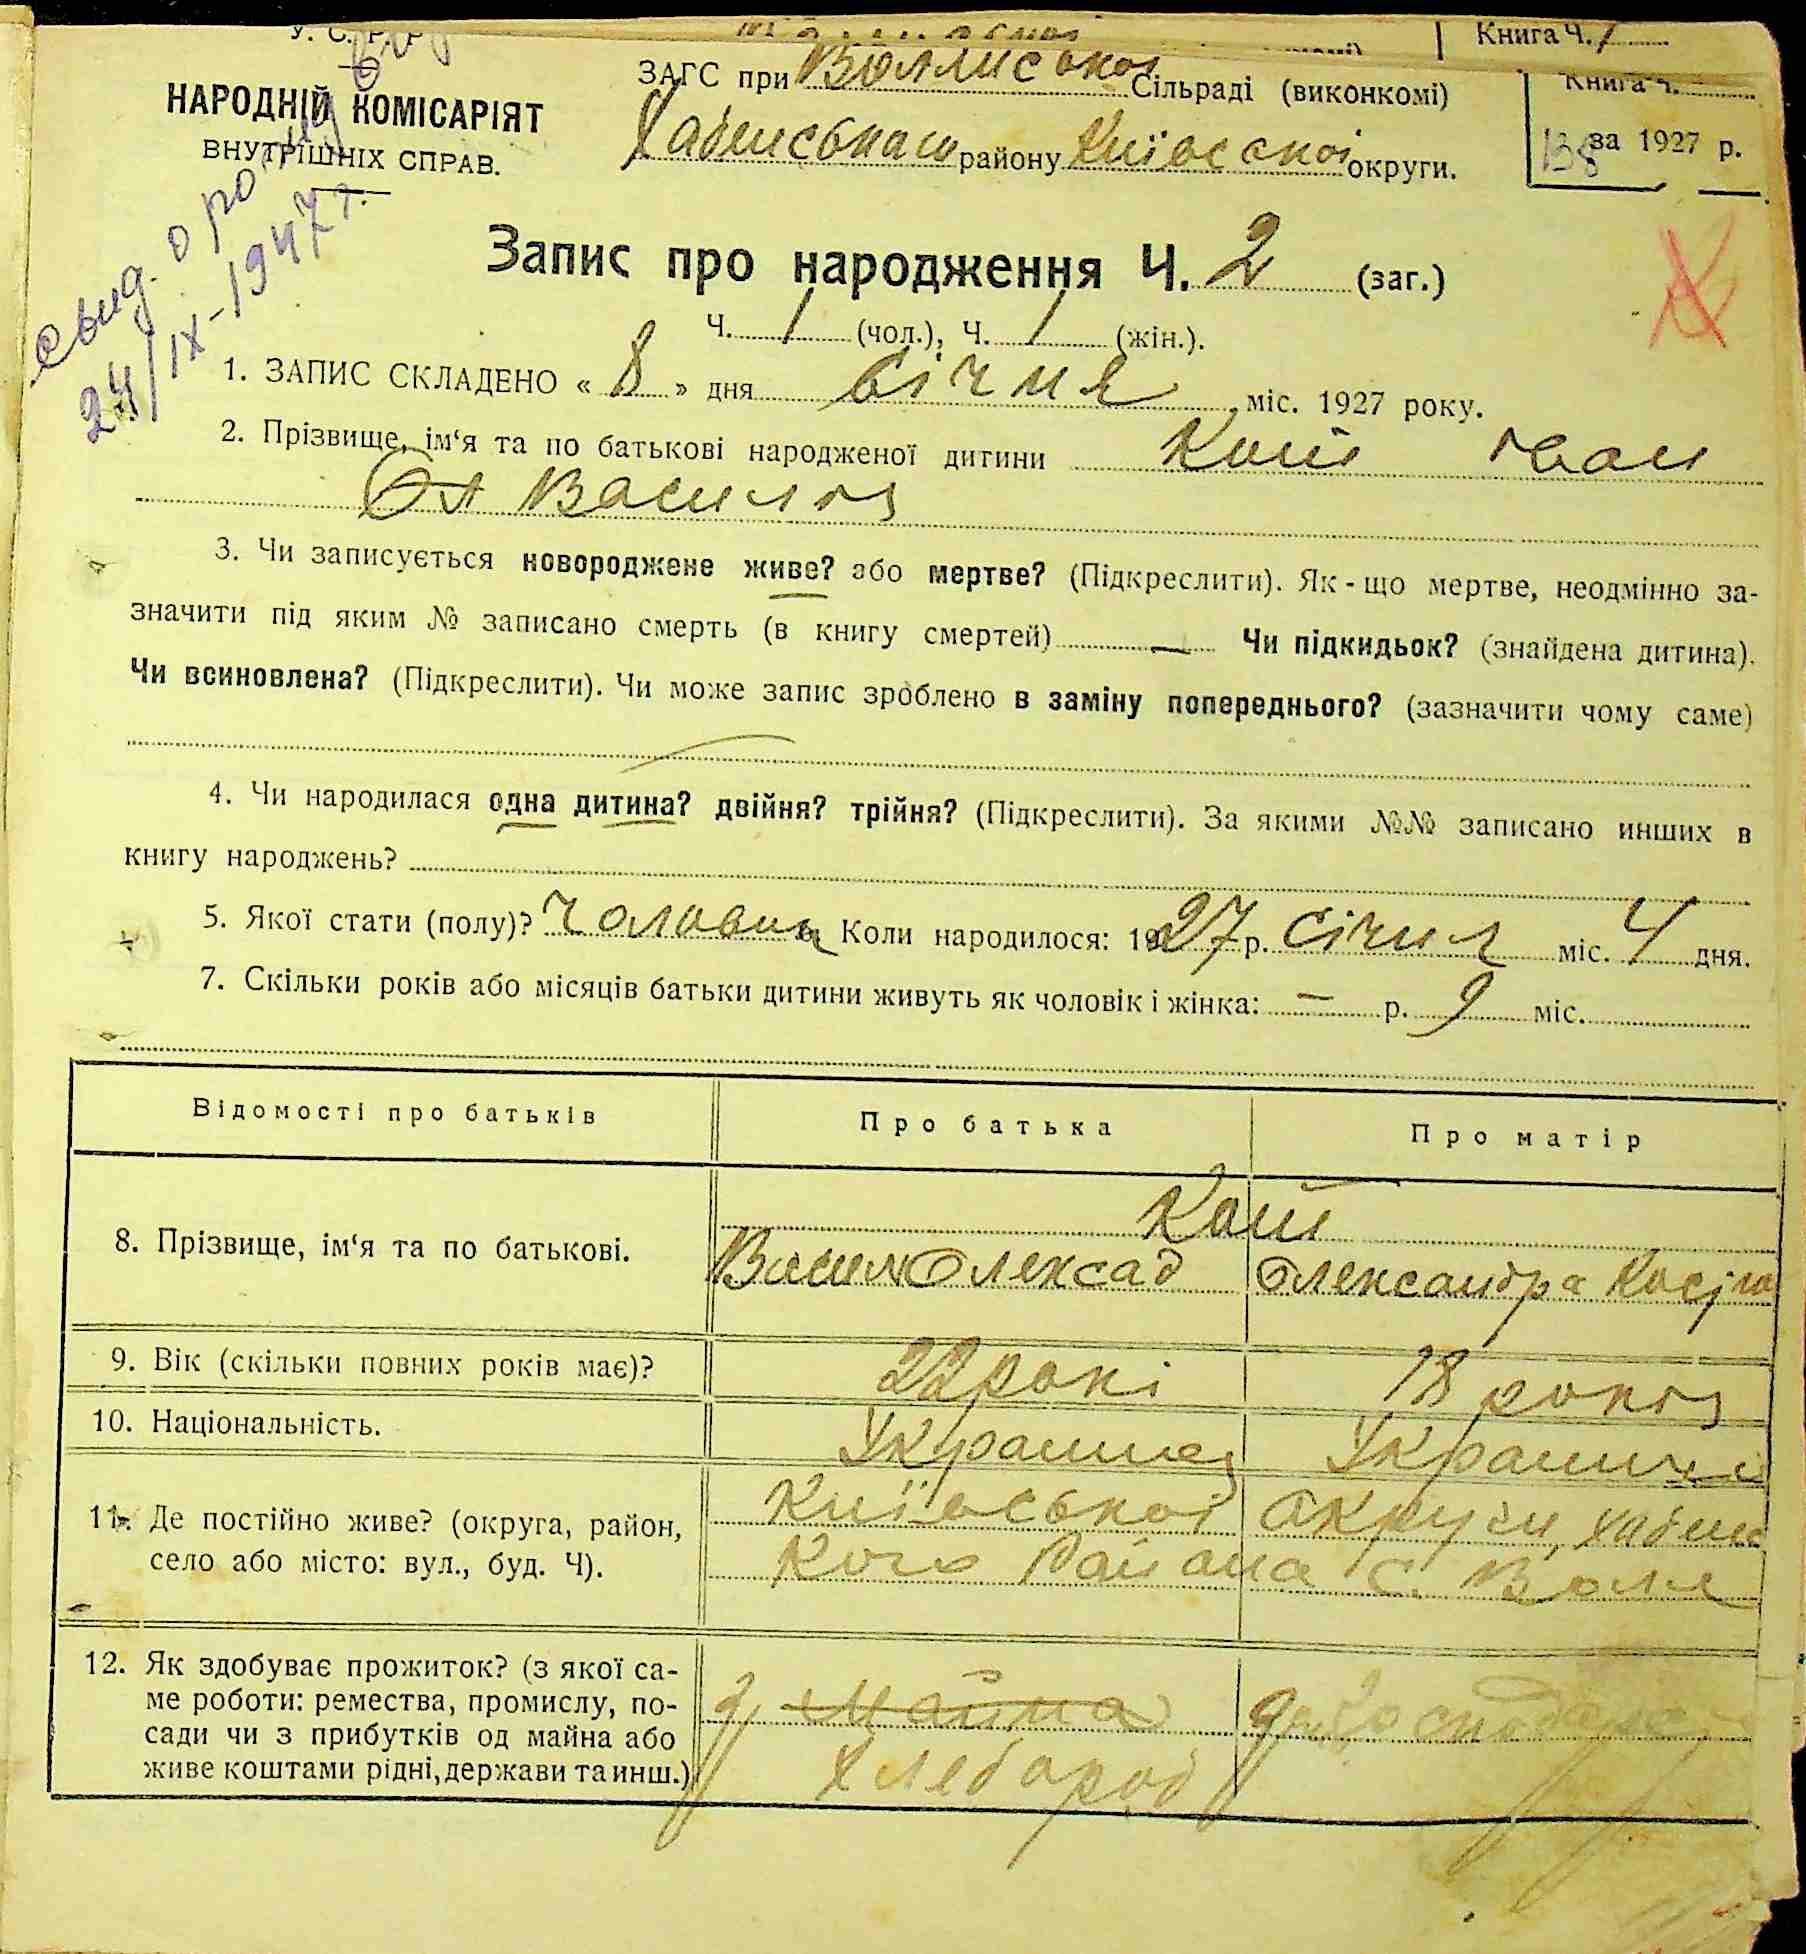 У. С. Р. Р
НАРОДНІЙ КОМІСАРІЯТ
ВНУТРІШНІХ СПРАВ.
свид. о рожд
24/IX-1947 г.
Книга Ч. 1
ЗАГС при Воллиської Сільраді (виконкомі)
району Київської округи.
Книга Ч.
138 за 1927 р.
Запис про народження Ч. 2 (заг.)
Ч. 1 (чол.), Ч. 1 (жін.).
1. ЗАПИС СКЛАДЕНО « 8 » дня січня міс. 1927 року.
2. Прізвище, ім‘я та по батькові народженої дитини Кот Іван
Василів
3. Чи записується новороджене живе? або мертве? (Підкреслити). Як-що мертве, неодмінно за-
значити під яким № записано смерть (в книгу смертей) — Чи підкидьок? (знайдена дитина).
Чи всиновлена? (Підкреслити). Чи може запис зроблено в заміну попереднього? (зазначити чому саме)
4. Чи народилася одна дитина? двійня? трійня? (Підкреслити). За якими №№ записано инших в
книгу народжень?
5. Якої стати (полу)? Чолович 6. Коли народилося: 1927 р. Січня міс. 4 дня.
7. Скільки років або місяців батьки дитини живуть як чоловік і жінка: — р. 9 міс.
Відомості про батьків Про батька Про матір
8. Прізвище, ім‘я та по батькові. Кот
Васил Олексад Олександра
9. Вік (скільки повних років має)? 22 рокі 18 років
10. Національність. Украинец Украинка
11. Де постійно живе? (округа, район,
село або місто: вул., буд. Ч).
Київської Округи, Хабенс
кого Района с. Воля
12. Як здобуває прожиток? (з якої са-
ме роботи: ремества, промислу, по-
сади чи з прибутків од майна або
живе коштами рідні, держави та инш.)
майна
хлебороб